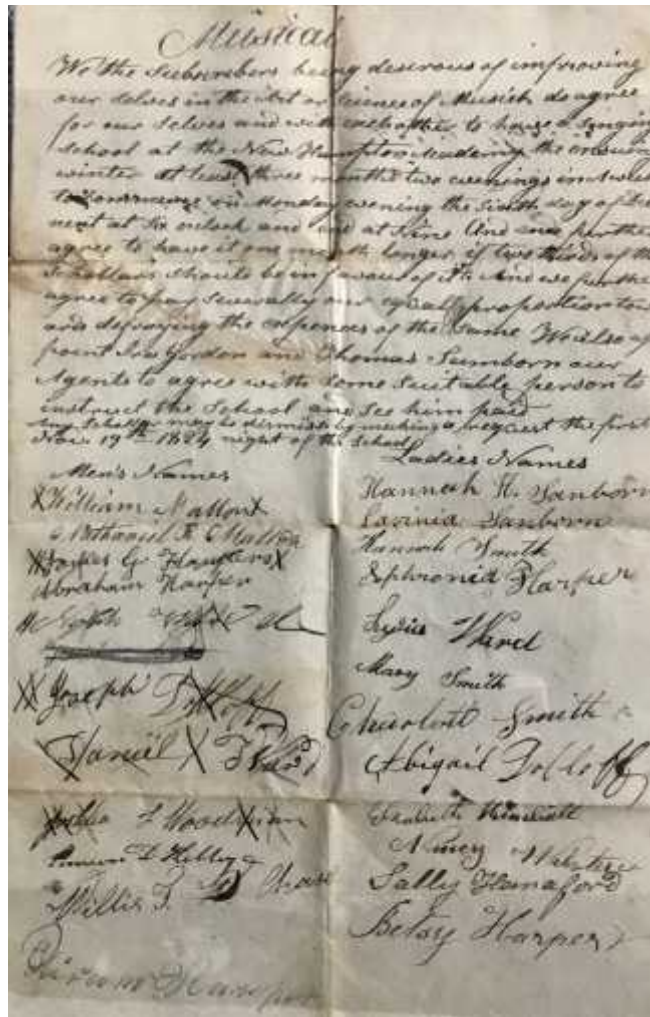 Musical
We the Subscribers being desirous of improving
our selves in the Art or Science of Musick do agree
for our selves and with each other to have a singing
School at the New Hampton Academy the ensuing
winter at least three months two evenings in a week
to commence on Monday evening the sixth day of De
next at six oclock and end at Nine And we further
agree to have it one month longer if two thirds of the
Schollars should be in favour of it And we further
agree to pay severally our equal proportion tow
ards defraying the expences of the same We also ap
point Ira Gordon and Thomas Sanborn our
Agents to agree with some suitable person to
instruct the School and see him paid
any Schollar may be dismist by making a request the first
Nov. 19th 1824 night of the School
Men's Names
Ladies Names
William
Hannah H. Sanborn
Nathaniel
Lavinia Sanborn
Hannah Smith
Abraham Harper
Sophronia Harper
Ward
Mary Smith
Joseph Dolloff
Smith
Daniel Ward
Abigail Dolloff
Woodman
Nancy Webster
Chase
Sally Hanaford
Willis
Betsy Harper